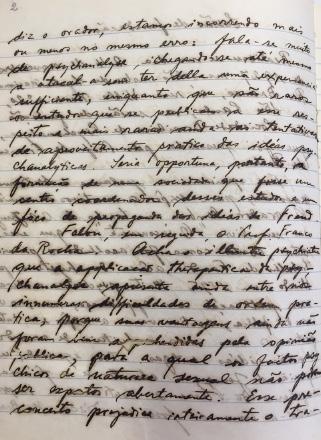 2
diz o orador, estamos incorrendo mais
ou menos no mesmo erro: fala-se muito
de psychanalyse, chegando-se até mesmo
a ter della uma experiencia
sufficiente, enquanto que são
os estudos que se publicam a esse res-
peito e mais raras ainda as tentativas
de aproveitamento pratico das idéas psy-
chanalyticas. Seria opportuna, portanto, a
formação de uma sociedade que fosse um
centro coordenador desses estudos e um
fóco de propaganda das idéas de Freud.
Falou, em seguida o Prof. Franco
da Rocha. Acha o illustre psychiatra
que a applicação therapeutica da psy-
chanalyse apresenta ainda entre nós
innumeras difficuldades de ordem pra-
tica, porque suas vantagens ainda não
foram bem apprehendidas pela opinião
publica, para a qual os factos psy-
chicos de natureza sexual não podem
ser expostos abertamente. Esse pre-
conceito prejudica inteiramente o tra-